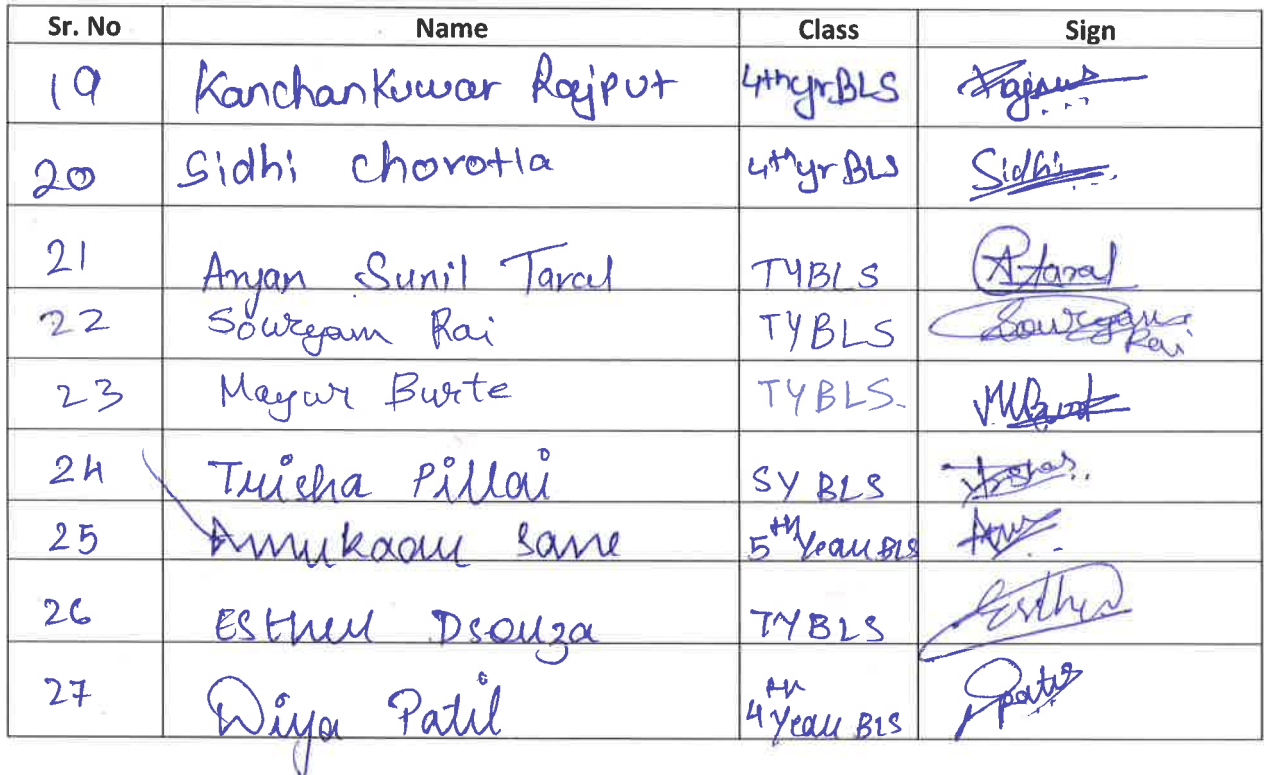 Sr. No Name Class Sign
19 Kanchankuwar Rajput 4th yr BLS Rajput
20 Sidhi Chorotia 4th yr BLS Sidhi
21 Aryan Sunil Taral TYBLS A.taral
22 Souregam Rai TYBLS Souregam Rai
23 Mayur Burte TYBLS.
24 Trisha Pillai SY BLS
25 Sane 5th Year BLS
26 Esther Dsouza TYBLS Esther
27 Diya Patil 4th Year BLS Patil